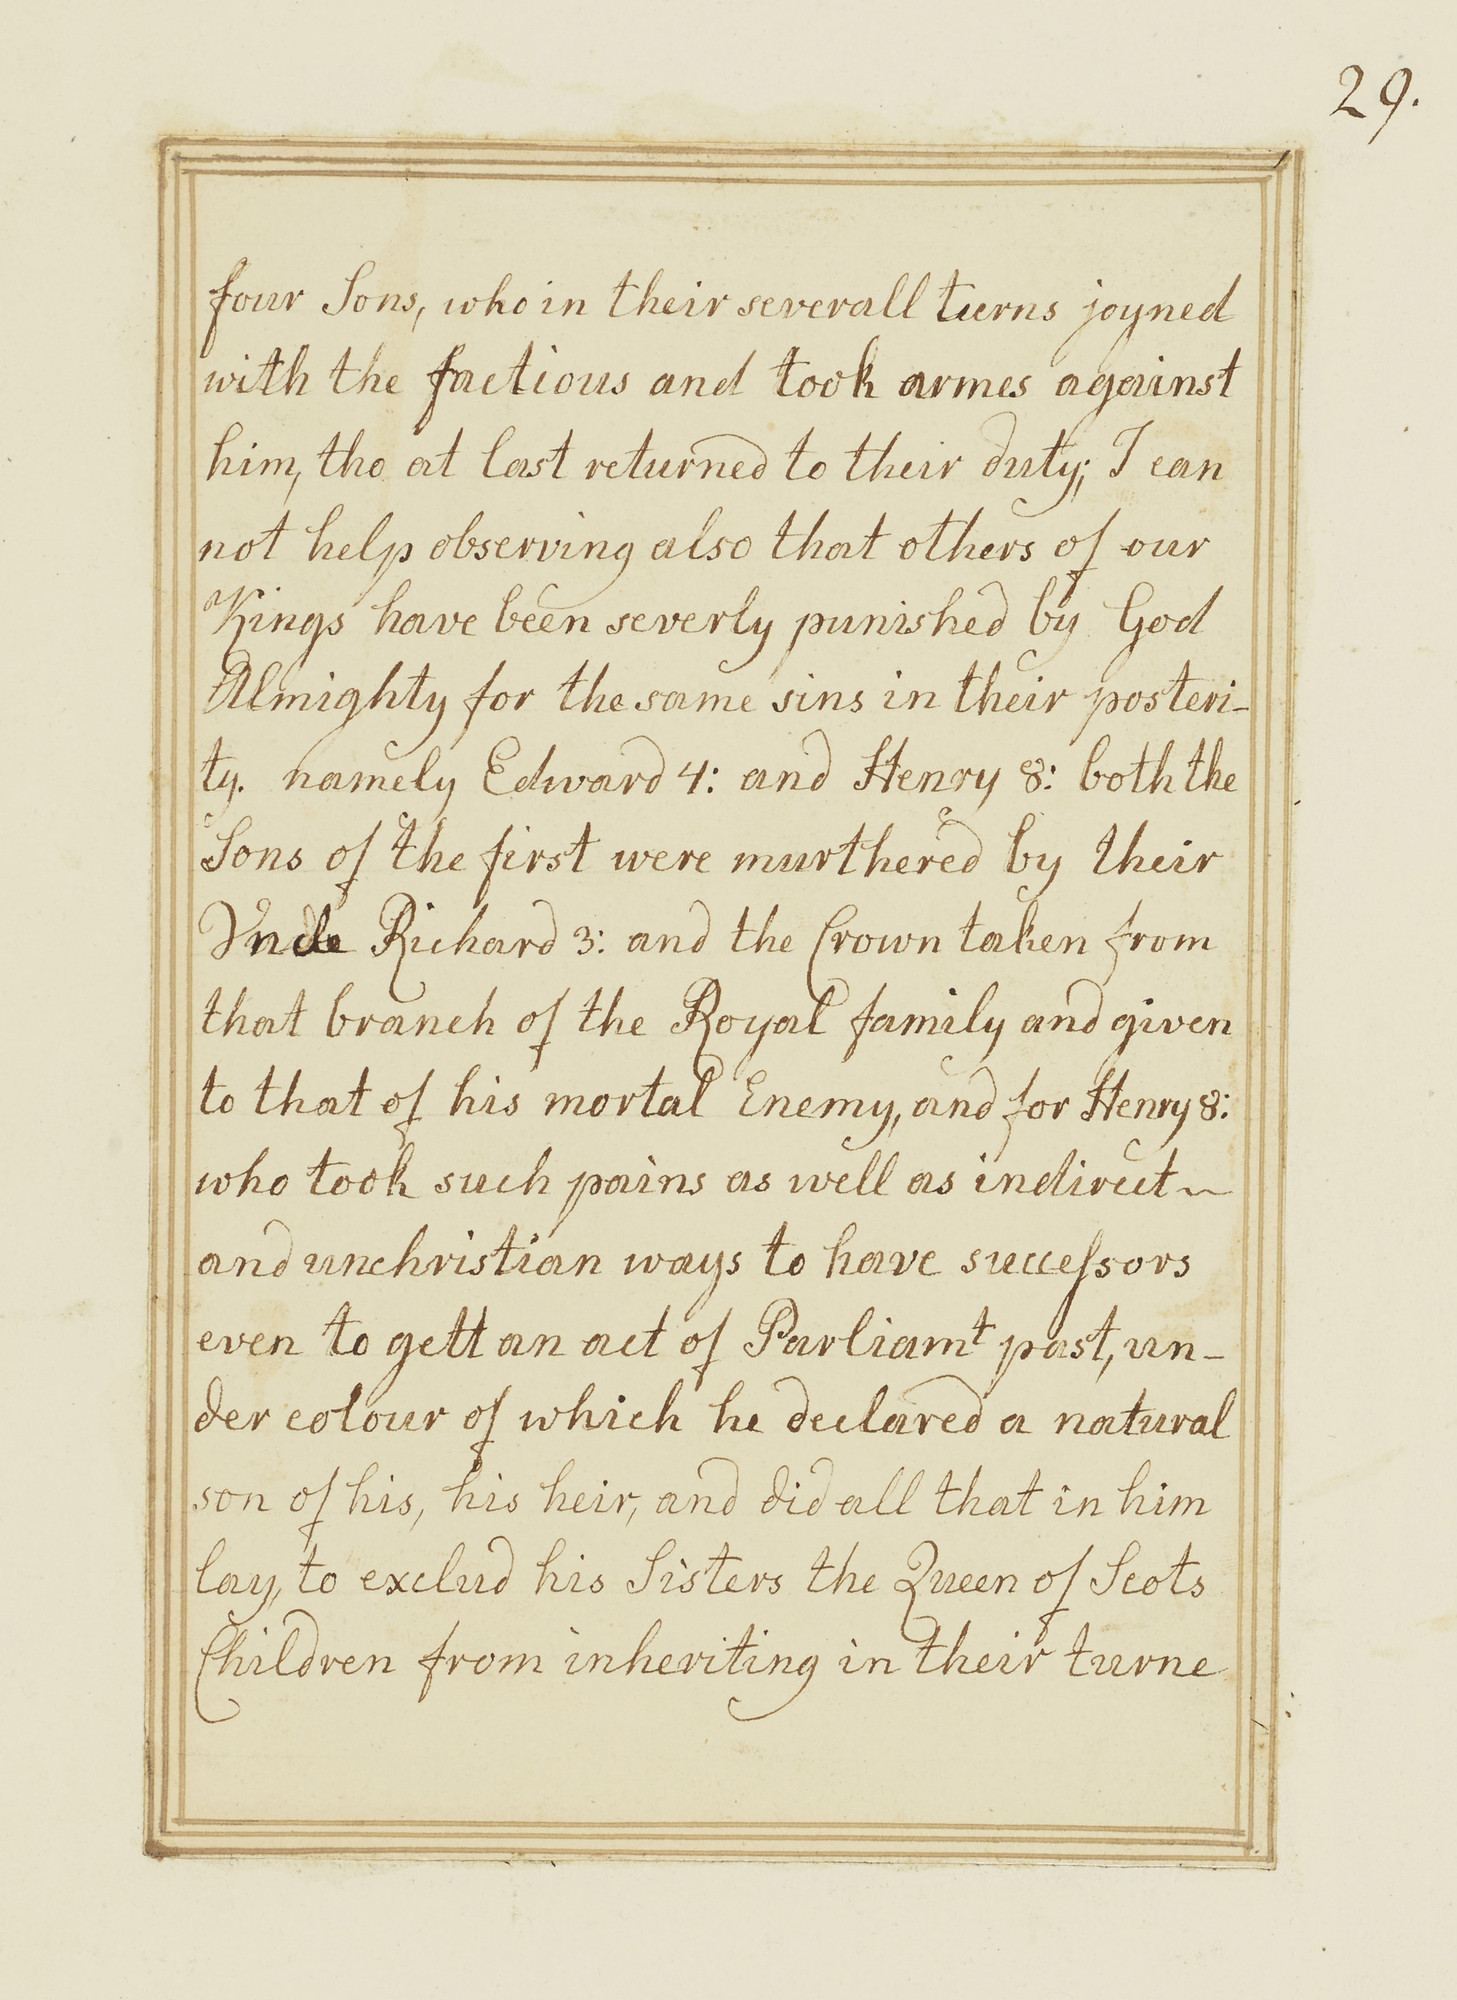 29.
four Sons, who in their severall turns joyned
with the factious and took armes against
him, tho at last returned to their duty; I can
not help observing also that others of our
Kings have been severly punished by God
Almighty for the same sins in their posteri-
ty. namely Edward 4: and Henry 8: both the
Sons of the first were murthered by their
Vncle Richard 3: and the Crown taken from
that branch of the Royal family and given
to that of his mortal Enemy, and for Henry 8:
who took such pains as well as indirect ~
and unchristian ways to have succeſsors
even to gett an act of Parliamt past, un-
der colour of which he declared a natural
son of his, his heir, and did all that in him
lay, to exclud his Sisters the Queen of Scots
Children from inheriting in their turne